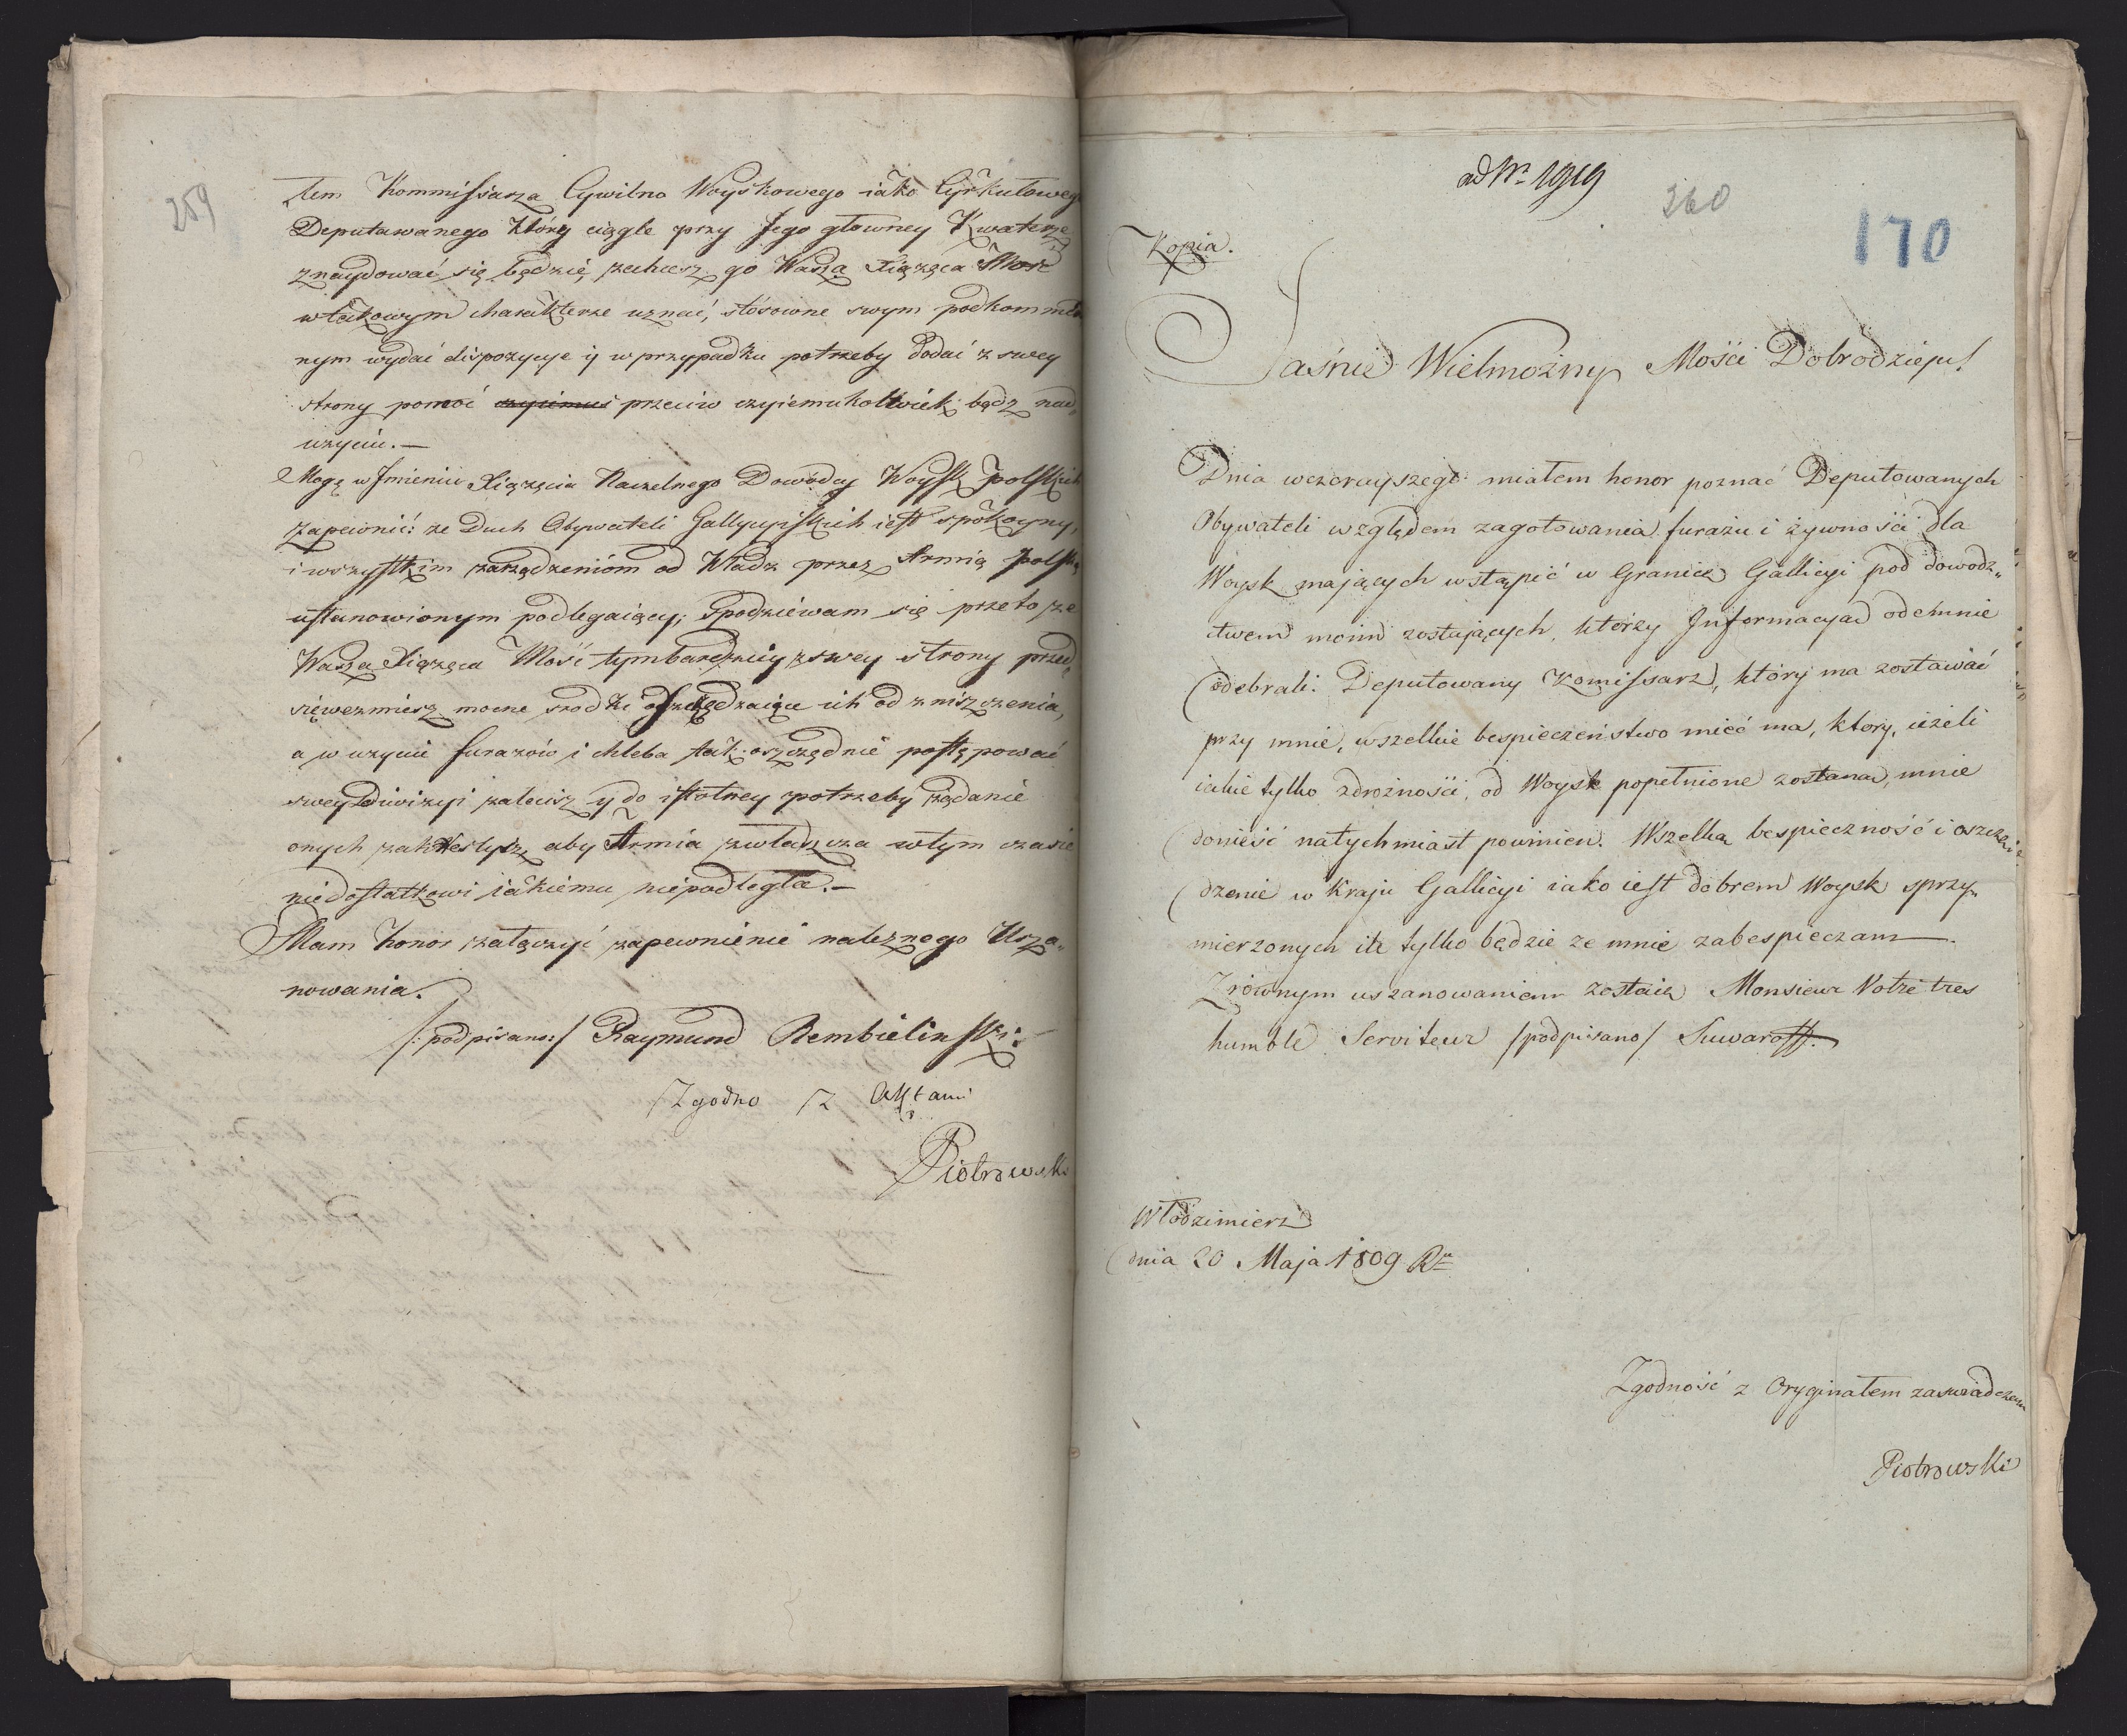 259
tem Kommissarza Cywilno Woyskowego iako Cyrkułowego
Deputawanego który ciągle przy Jego głowney Kwaterze
znaydować się będzie, zechcesz go Wasza Xiążęca Mość
w takowym charakterze uznać, stósowne swym podkommen
nym wydać dispozycye iy w przypadku potrzeby dodać z swey
strony pomoć czyiemuś przeciw czyiemukolwiek bądz nad„
użyciu.—
Mogę w Jmieniu Xiążęcia Naczelnego Dowódcy Woysk polskich
zapewnić: ze Duch Obywateli Gallicyiskich iest spokoyny,
i wszystkim zarządzeniom od Władz przez Armią polską
ustanowionym podlegaiący; Spodziewam się przeto że
Wasza Xiążęca Mość tymbardziey z swey strony przed„
sięwezmiesz mocne srodki oszczędzaiące ich od zniszczenia,
a w użyciu furazów i chleba tak oszczędnie postępować
swey Diwizyi zalecisz y do istotney potrzeby żądanie
onych zakryslysz, aby Armia zwłaszcza w tym czasie
niedostatkowi iakiemu niepodległa.—
Mam honor załączyć zapewnienie należnego Usza„
nowania.
/: podpisano:/ Raymund Rembielinski:
Zgodno z Aktami
Piotrowski
ad Nr 1919
360
170
Kopia.
Jaśnie Wielmożny Mości Dobrodzieju!
Dnia wczorayszego miałem honor poznać Deputowanych
Obywateli względem zagotowania furażu i żywności dla
Woysk mających wstąpić w Granice Gallicyi pod dowodz„
twem moim zostających, którzy Informacyą odemnie
odebrali. Deputowany Komissarz, który ma zostawać
przy mnie, wszelkie bespieczeństwo mieć ma, ktory, ieżeli
iakie tylko zdrożności, od Woysk popełnione zostaną, mnie
donieść natychmiast powinien. Wszelką bespieczność i oszczę„
dzenie w Kraju Gallicyi iako iest dobrem Woysk sprzy„
mierzonych ile tylko będzie ze mnie zabespieczam—.
Zrównym uszanowaniem zostaię Monsieur Votre tres
humble Serviteur /podpisano/ Suwaroff.
Włodzimierz
dnia 20 Maja 1809 Ru
Zgodność z Oryginałem zaswiadczam
Piotrowski